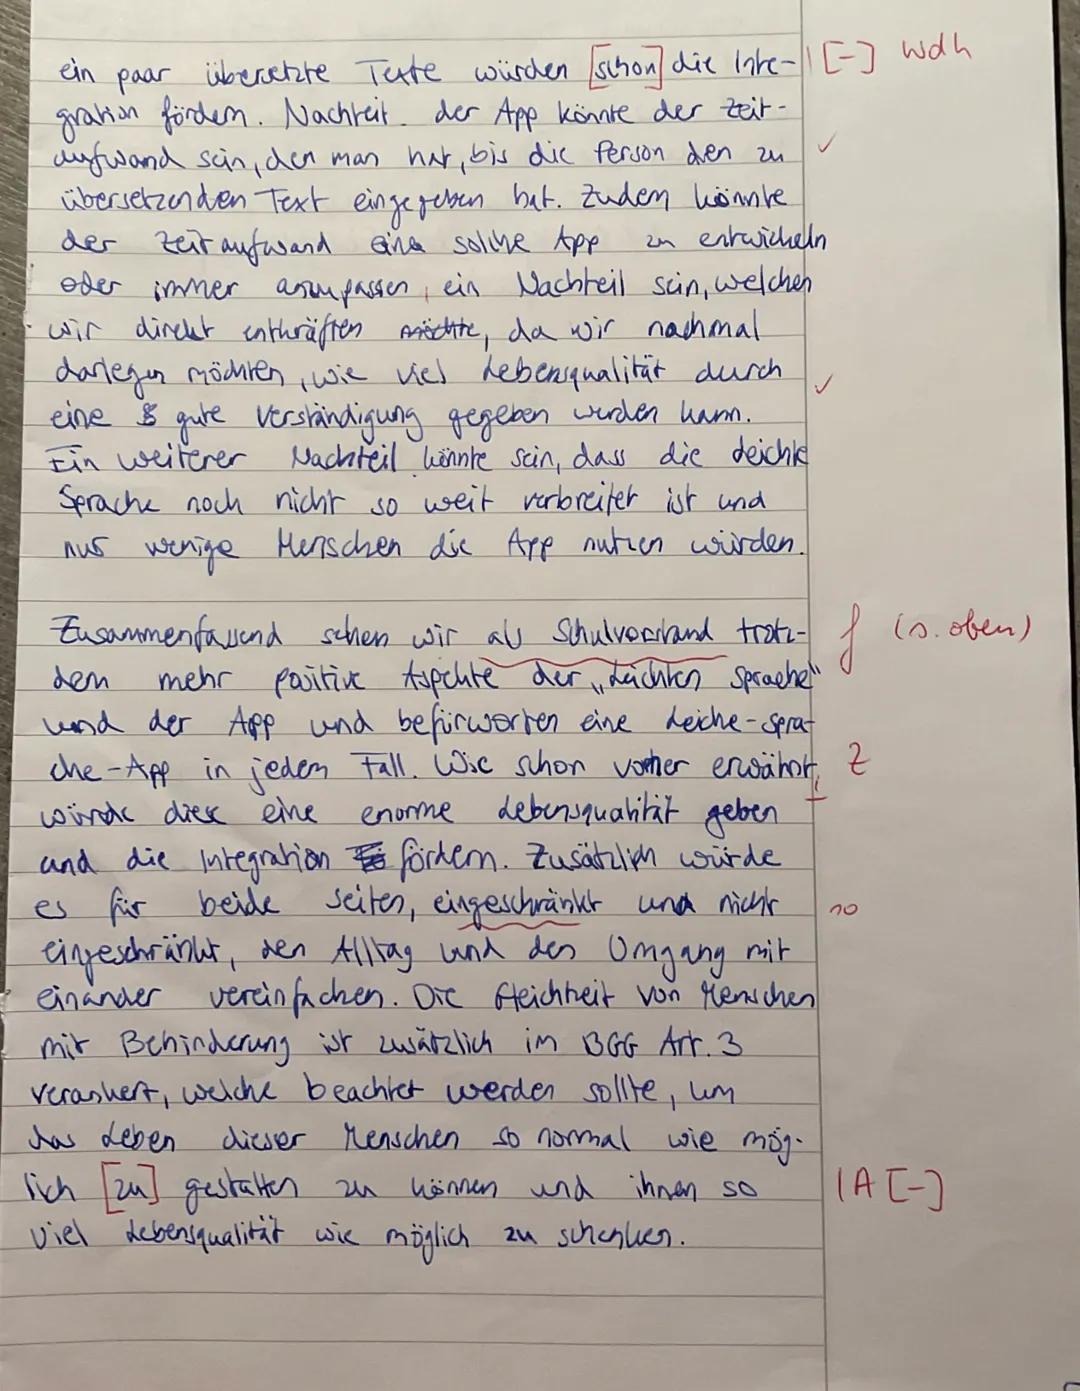 ein paar übersetzte Texte würden [schon] die Inte- | [-] wdh
gration fördern. Nachteil der App könnte der Zeit-
aufwand sein, den man hat, bis die Person den zu ✓
übersetzenden Text eingegeben hat. Zudem könnte
der Zeitaufwand eine solche App zu entwickeln
oder immer anzupassen, ein Nachteil sein, welchen
wir direkt entkräften möchte, da wir nochmal
darlegen möchten, wie viel Lebensqualität durch ✓
eine gute Verständigung gegeben werden kann.
Ein weiterer Nachteil könnte sein, dass die Leichte
Sprache noch nicht so weit verbreitet ist und
nur wenige Menschen die App nutzen würden.
Zusammenfassend sehen wir als Schulvorstand trotz- f (s. oben)
dem mehr positive Aspekte der „Leichten Sprache"
und der App und befürworten eine Leiche-Spra-
che-App in jedem Fall. Wie schon vorher erwähnt, Z
würde diese eine enorme Lebensqualität geben
und die Integration fördern. Zusätzlich würde
es für beide Seiten, eingeschränkt und nicht
eingeschränkt, den Alltag und den Umgang mit
einander vereinfachen. Die Gleichheit von Menschen
mit Behinderung ist zusätzlich im BGG Art. 3
verankert, welche beachtet werden sollte, um
das Leben dieser Menschen so normal wie mög-
lich [zu] gestalten zu können und ihnen so | A [-]
viel Lebensqualität wie möglich zu schenken.